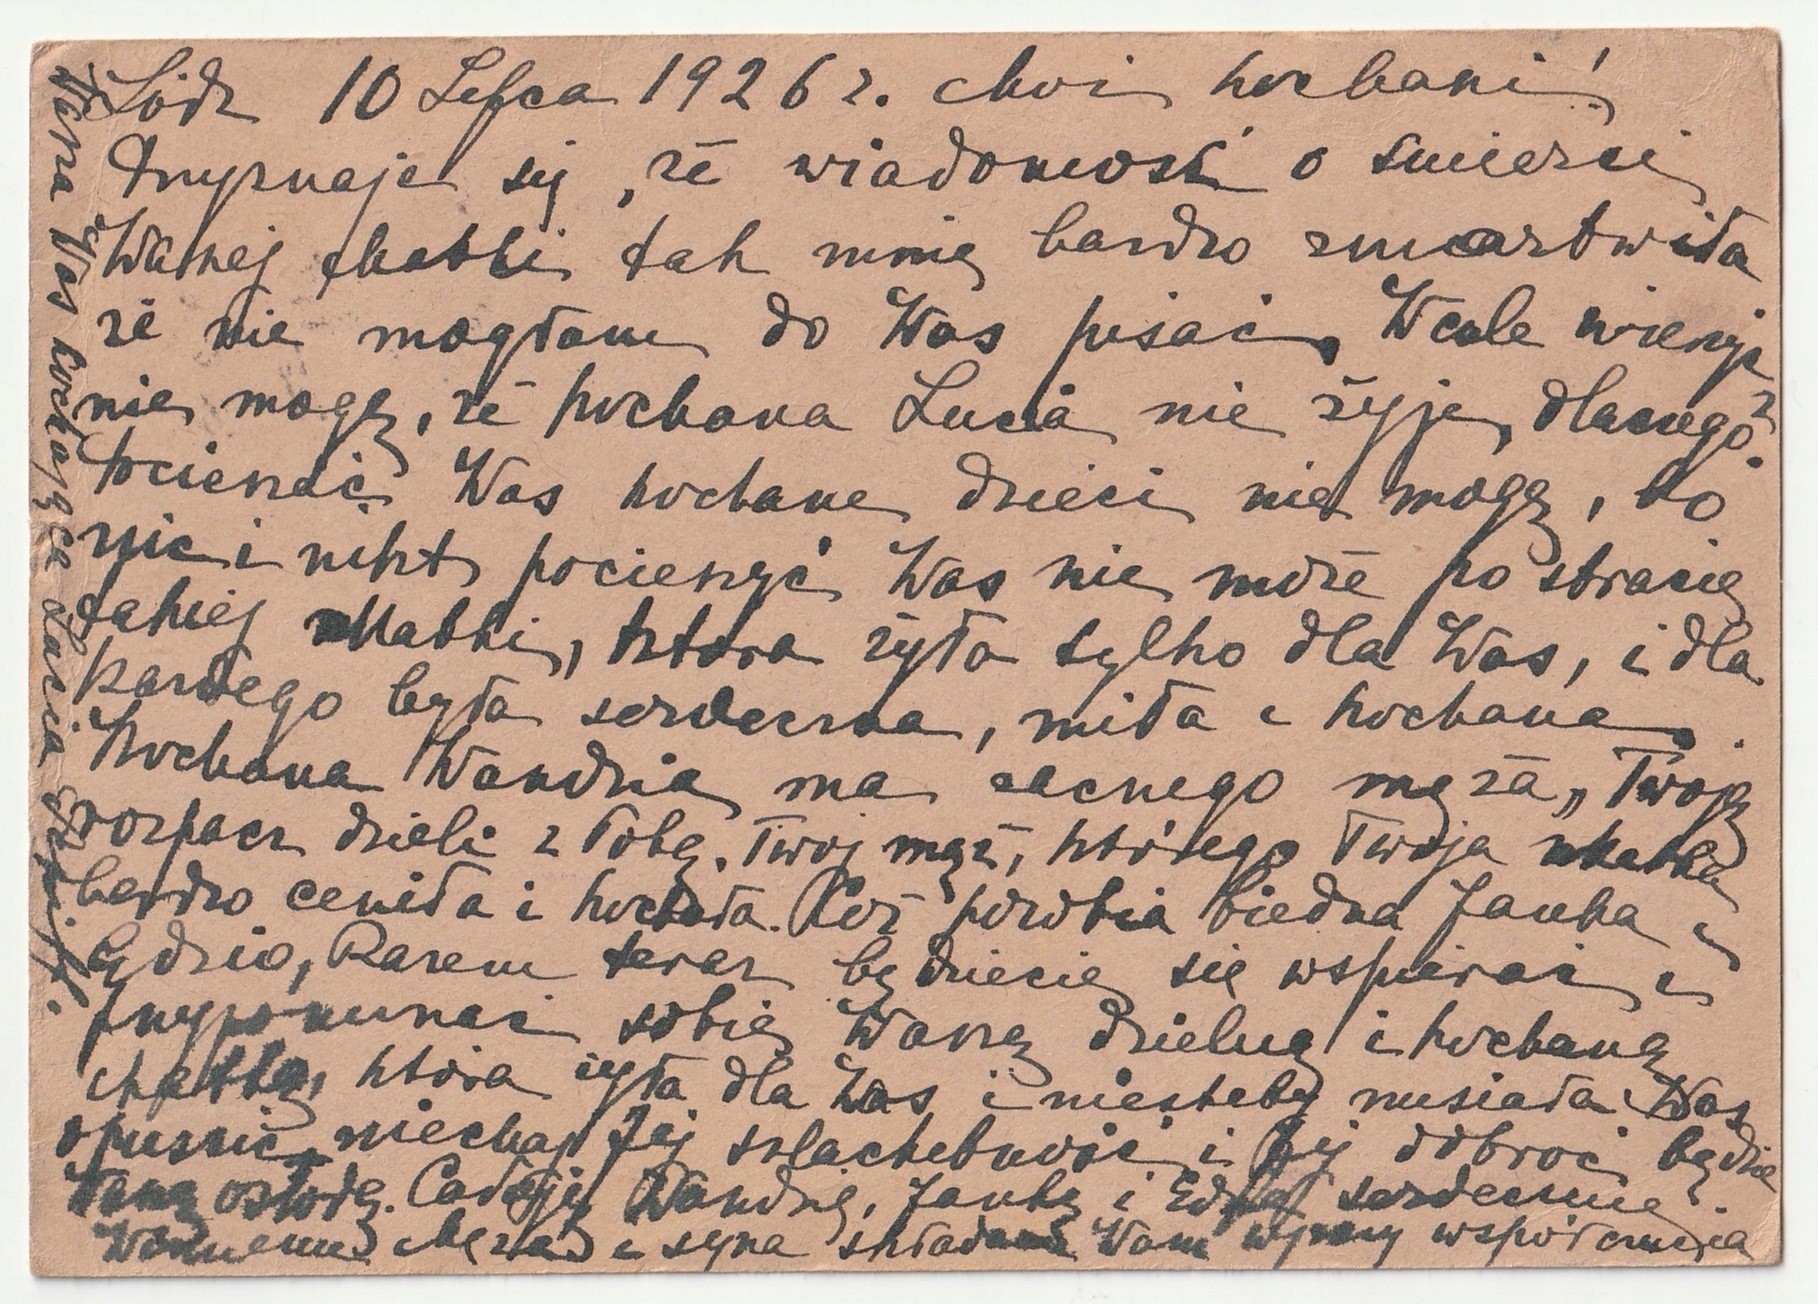 Łódź 10 Lipca 1926 r. Moi kochani!
Przyznaję się, że wiadomość o śmierci
Waszej Matki tak mnię bardzo zmartwiła
że nie mogłam do Was pisać, Wcale wierzyć
nie mogę, że kochana Lucia nie żyje, dlaczego?
Pocieszać Was kochane dzieci nie mogę, bo
nic i nikt pocieszyć Was nie może po stracie
takiej Matki, która żyła tylko dla Was, i dla
każdego była serdeczna, miła i kochana.
Kochana Wandzia ma zacnego męża, Twoją
rozpacz dzieli z Tobą. Twój mąż, którego Twoja Matka
bardzo ceniła i kochała. Cóż porobia biedna Janka i
Edzio, Razem teraz będziecie się wspierać i
przypominać sobie Waszą dzielną i kochaną
Matkę, która żyła dla Was i niestety musiała Was
opuścić, niechaj Jej szlachetność i Jej dobroć będzie
Wam osłodą. Całuję Wandzię, Jankę i serdecznie
Męża i syna składam Wam wyrazy współczucia
Was kochająca